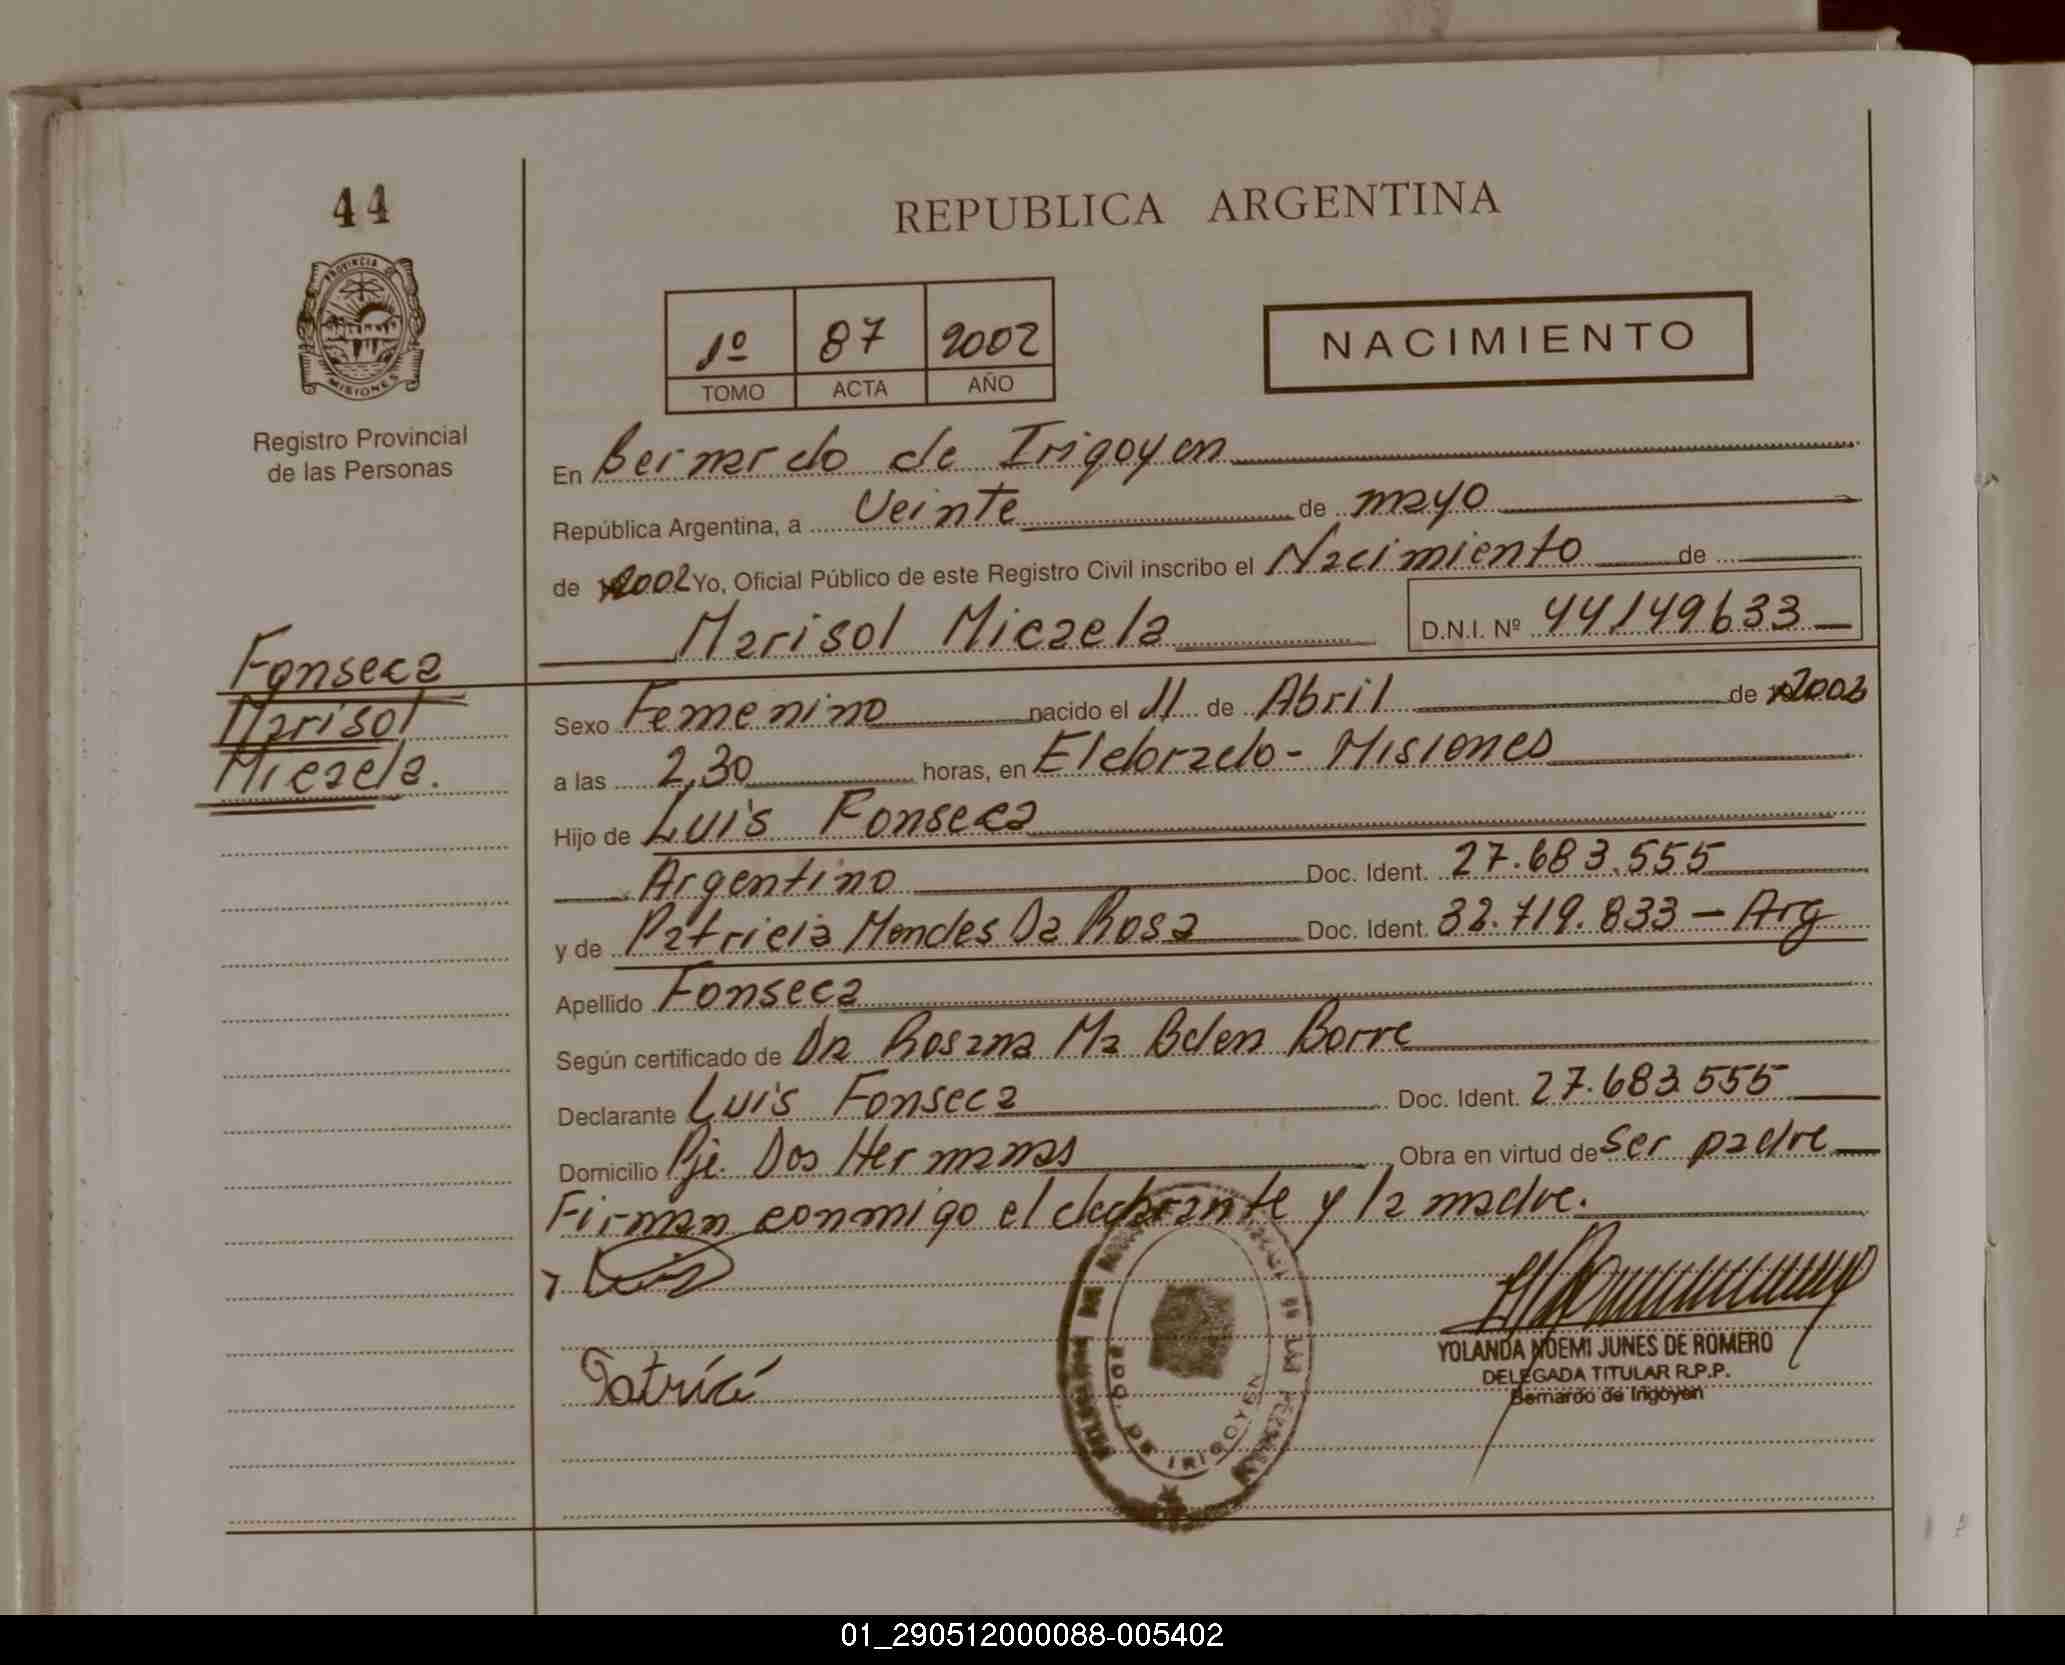 44
REPUBLICA ARGENTINA
PROVINCIA DE
MISIONES
Registro Provincial
de las Personas
1º 87 2002
TOMO ACTA AÑO
NACIMIENTO
En Bernardo de Irigoyen
República Argentina, a Veinte de mayo
de 2002 Yo, Oficial Público de este Registro Civil inscribo el Nacimiento de
Marisol Micaela D.N.I. Nº 44149633
Fonseca
Marisol
Micaela.
Sexo Femenino nacido el 11 de Abril de 2002
a las 2,30 horas, en Eldorado - Misiones
Hijo de Luis Fonseca
Argentino Doc. Ident. 27.683.555
y de Patricia Mendes Da Rosa Doc. Ident. 32.719.833 - Arg
Apellido Fonseca
Según certificado de Dra Rosana Ma Belen Borre
Declarante Luis Fonseca Doc. Ident. 27.683.555
Domicilio Pje. Dos Hermanas Obra en virtud de ser padre
Firman conmigo el declarante y la madre.
Luis
Patrici
BDO. DE IRIGOYEN
YOLANDA NOEMI JUNES DE ROMERO
DELEGADA TITULAR R.P.P.
Bernardo de Irigoyen
01_290512000088-005402